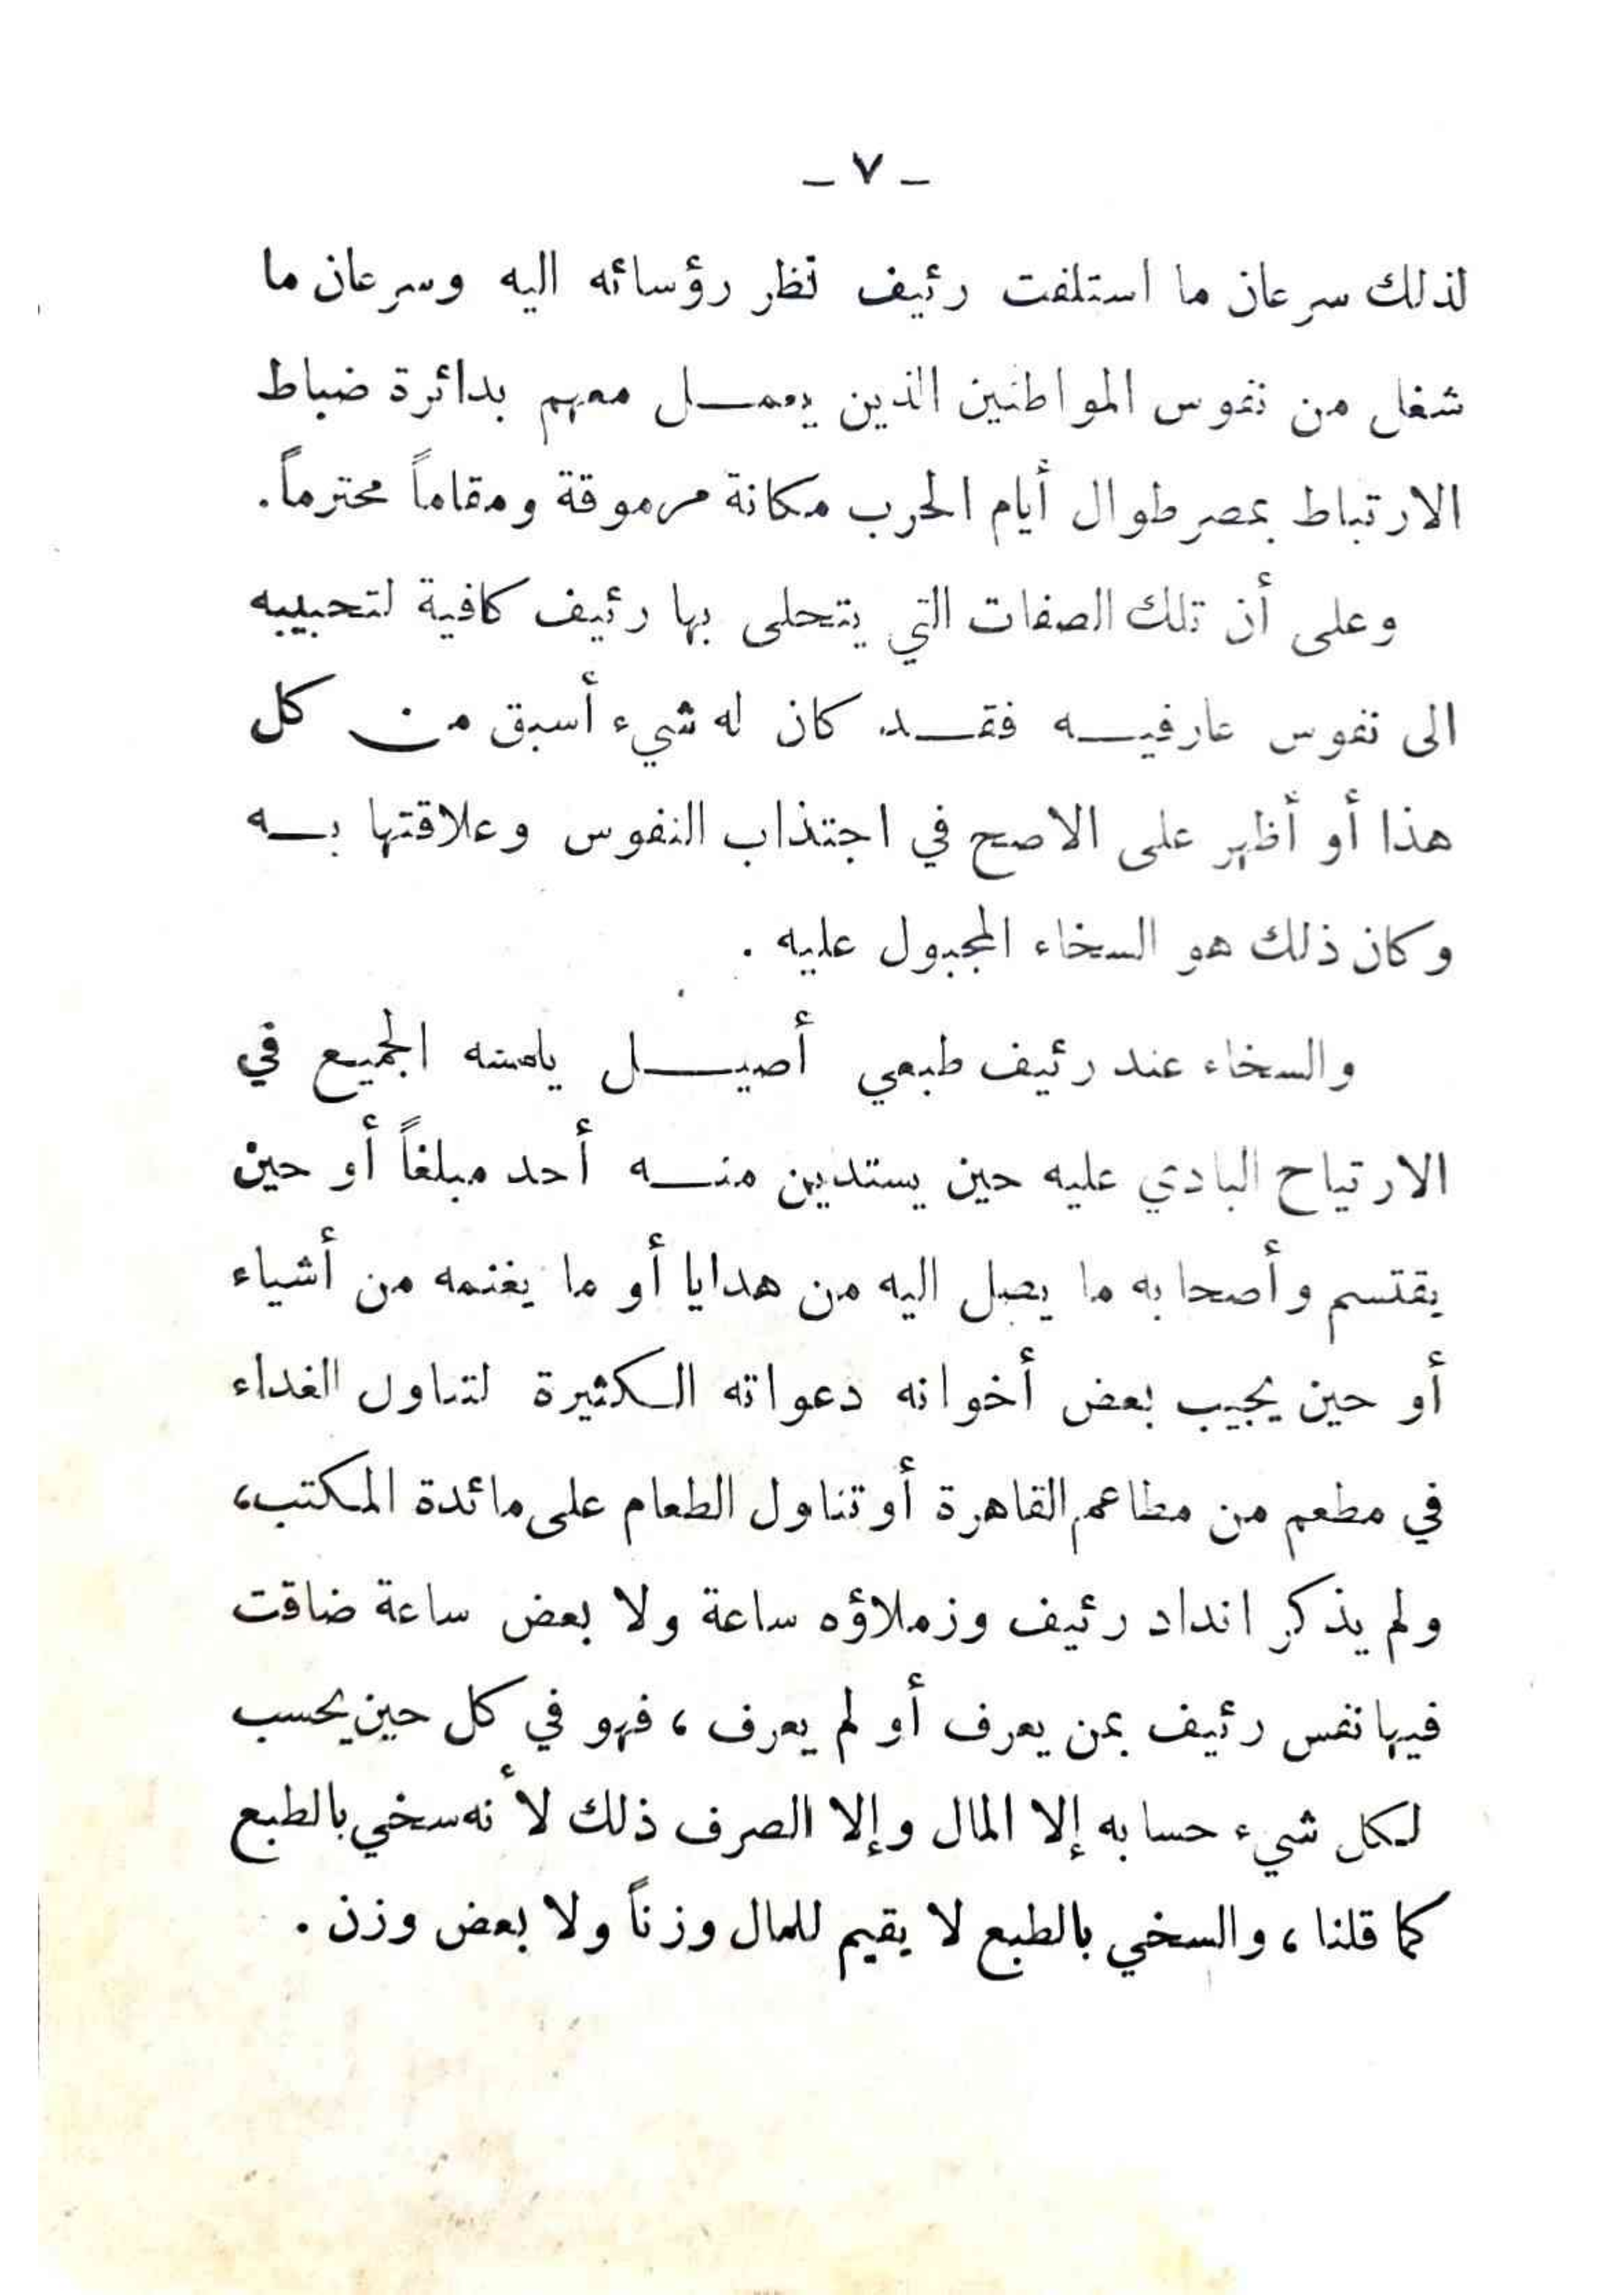 - ٧ -
لذلك سرعان ما استلفت رئيف نظر رؤسائه اليه وسرعان ما
شغل من نفوس المواطنين الذين يعمل معهم بدائرة ضباط
الارتباط بمصر طوال أيام الحرب مكانة مرموقة ومقاماً محترماً.
وعلى أن تلك الصفات التي يتحلى بها رئيف كافية لتحبيبه
الى نفوس عارفيه فقد كان له شيء أسبق من كل
هذا أو أظهر على الاصح في اجتذاب النفوس وعلاقتها به
وكان ذلك هو السخاء المجبول عليه .
والسخاء عند رئيف طبعي أصيل يلمسه الجميع في
الارتياح البادي عليه حين يستدين منه أحد مبلغاً أو حين
يقتسم وأصحابه ما يصل اليه من هدايا أو ما يغنمه من أشياء
أو حين يجيب بعض أخوانه دعواته الكثيرة لتناول الغداء
في مطعم من مطاعم القاهرة أو تناول الطعام على مائدة المكتب،
ولم يذكر انداد رئيف وزملاؤه ساعة ولا بعض ساعة ضاقت
فيها نفس رئيف بمن يعرف أو لم يعرف ، فهو في كل حين يحسب
لكل شيء حسابه إلا المال وإلا الصرف ذلك لأنه سخي بالطبع
كما قلنا ، والسخي بالطبع لا يقيم للمال وزناً ولا بعض وزن .